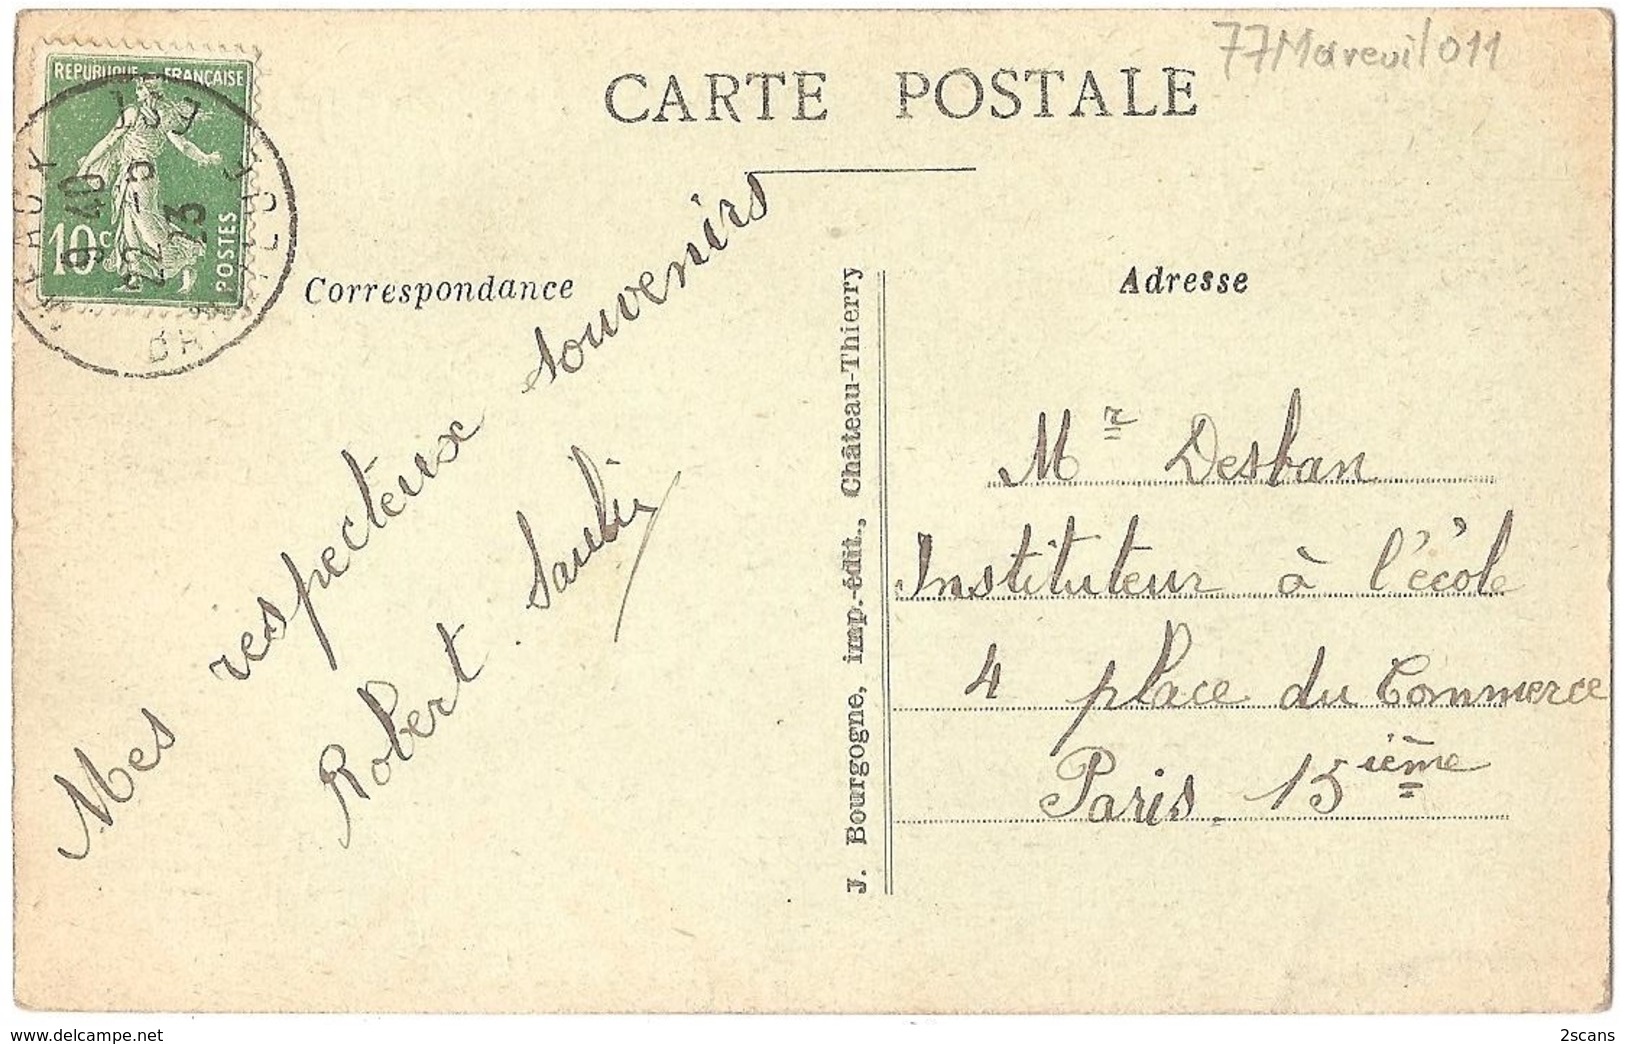 77Mareuil011
CARTE POSTALE
REPUBLIQUE FRANÇAISE
10c
POSTES
EST
9 40
22 -5
23
Correspondance
Adresse
Mes respectueux souvenirs
Robert
J. Bourgogne, imp.-édit., Château-Thierry
Mr Desban
Instituteur à l'école
4 place du Commerce
Paris. 15ième
delcampe.net
2scans